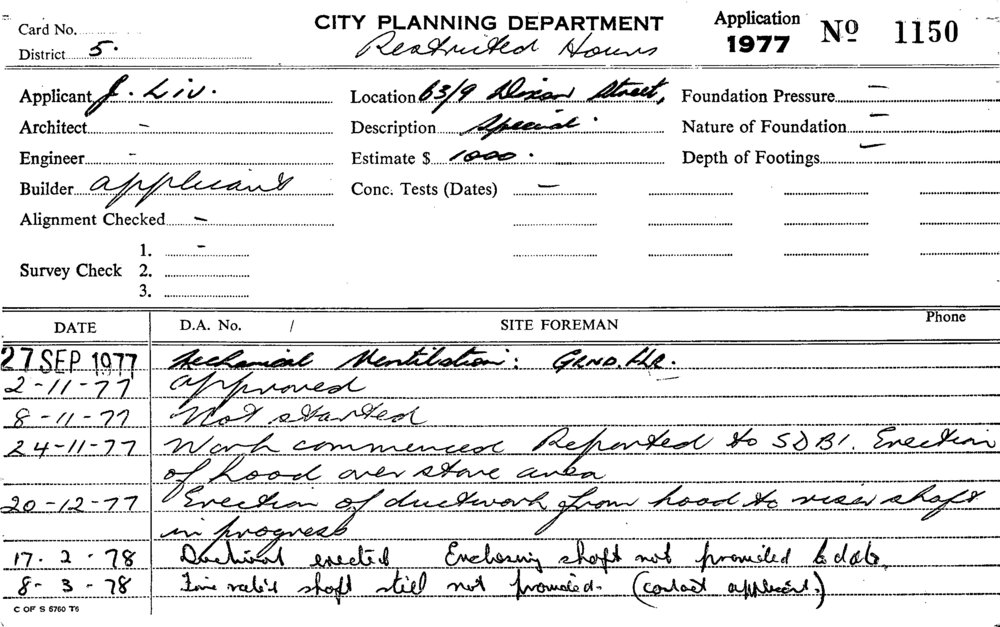 CITY PLANNING DEPARTMENT
Card No.
District 5.
Restricted Hours
Application
1977
No 1150
Applicant J. Liv.
Location 63/9 Dixon Street,
Foundation Pressure -
Architect -
Description Special.
Nature of Foundation -
Engineer -
Estimate $ 1000.
Depth of Footings -
Builder applicant
Conc. Tests (Dates) -
Alignment Checked -
Survey Check 1. -
2.
3.
DATE D.A. No. / SITE FOREMAN Phone
27 SEP 1977 Mechanical Ventilation: GRND. FLR.
2-11-77 approved
8-11-77 Not started
24-11-77 Work commenced Reported to SDBI. Erection
of hood over stove area
20-12-77 Erection of ductwork from hood to riser shaft
in progress
17. 2. 78 Ductwork erected Enclosing shaft not provided to date.
8-3-78 Fire rated shaft still not provided. (contact applicant.)
C OF S 5760 T6